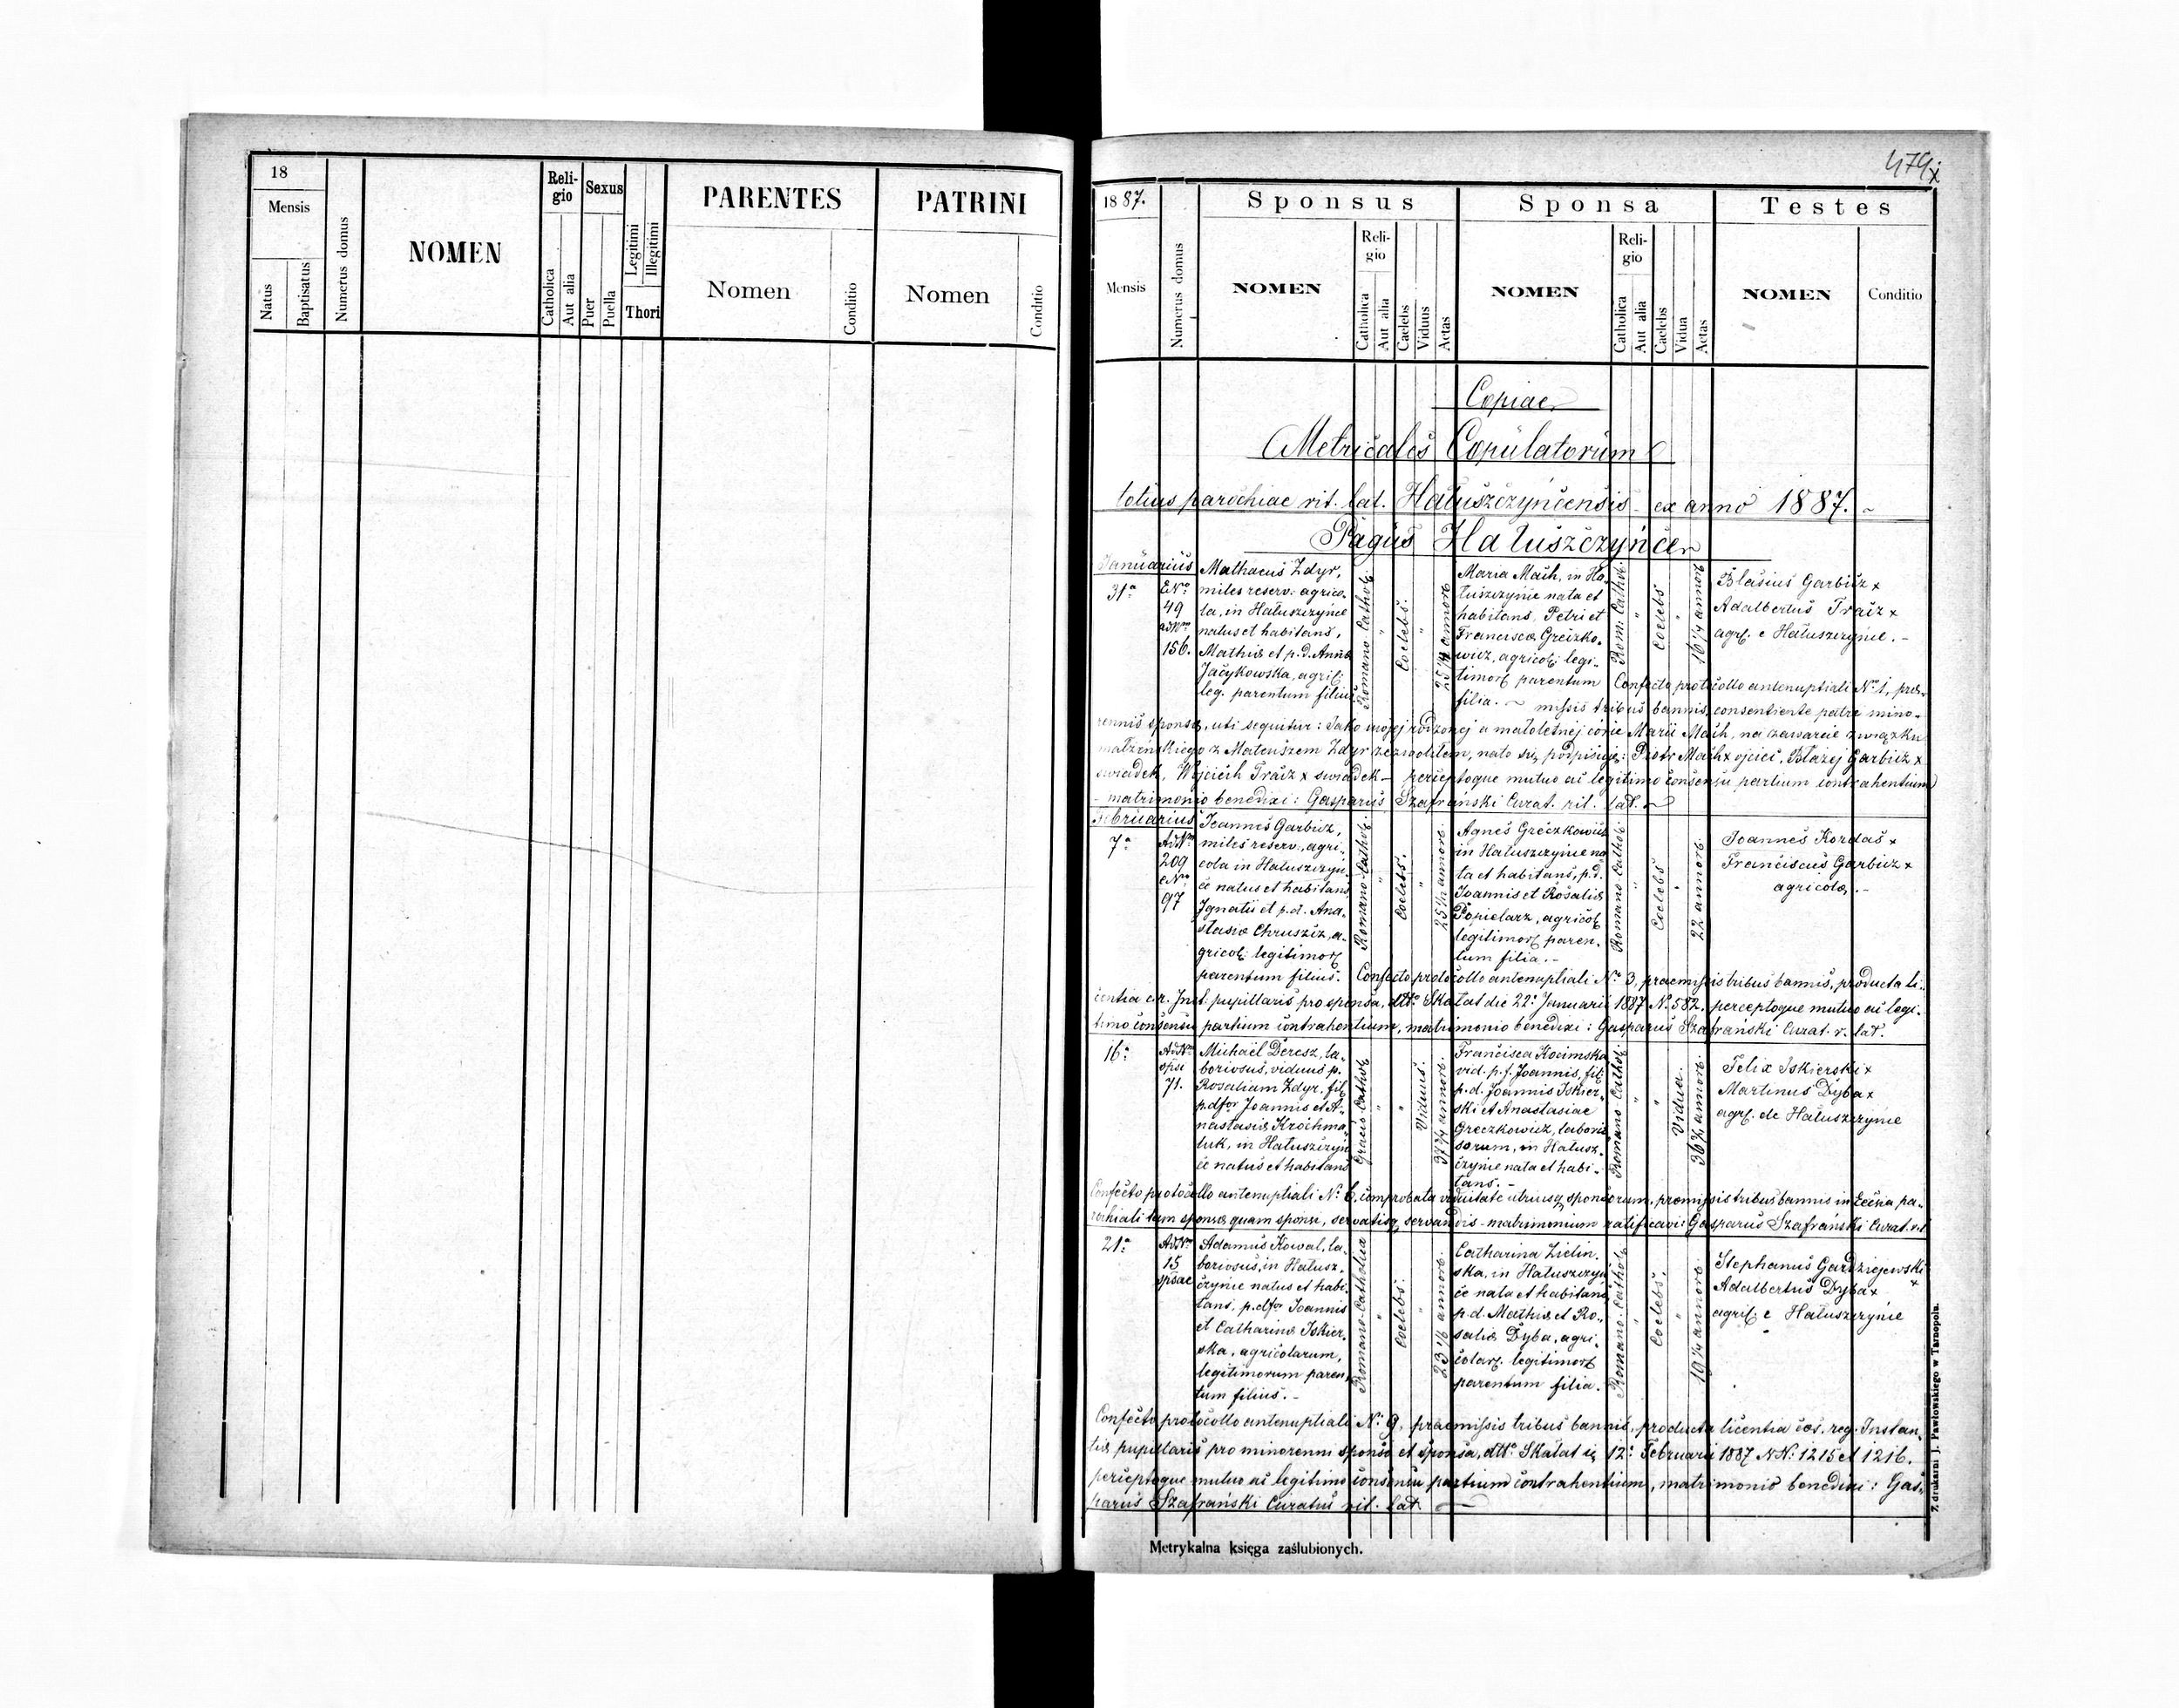 18
Mensis
Natus
Baptisatus
Numerus domus
NOMEN
Reli-
gio
Catholica
Aut alia
Sexus
Puer
Puella
Legitimi
Illegitimi
Thori
PARENTES
Nomen
Conditio
PATRINI
Nomen
Conditio
1887.
Mensis
Numerus domus
Sponsus
NOMEN
Reli-
gio
Catholica
Aut alia
Caelebs
Viduus
Aetas
Sponsa
NOMEN
Reli-
gio
Catholica
Aut alia
Caelebs
Vidua
Aetas
Testes
NOMEN
Conditio
Copiae
Metricales Copulatorum
totius parochiae rit. lat. Hałuszczyńcensis ex anno 1887.
Pagus Hałuszczyńce
Januarius
31a
E No
49
ad Nm
156.
Mathaeus Zdyr,
miles reserv: agrico-
la, in Hałuszczyńce
natus et habitans,
Mathiæ et p.d. Annæ
Jacykowska, agric:
leg. parentum filius
Romano Cathol:
"
Coelebs.
"
25 1/4 annors
Maria Mach, in Ha-
łuszczyńce nata et
habitans, Petri et
Franciscæ Greczko-
wicz, agricol: legi-
timor parentum
filia. ~
Rom: Cathol:
"
Coelebs
"
16 1/4 annors
Blasius Garbicz x
Adalbertus Tracz x
agr. e Hałuszczyńce. -
Confecto protocollo antenuptiali No 1, præ-
missis tribus bannis, consentiente patre mino-
rennis sponsæ, uti sequitur: Jako mojej rodzonej a małoletniej córie Maryi Mach, na zawarcie związku
małżeńskiego z Mateuszem Zdyr zezwoliłem, na to się podpisuję: Piotr Mach x ojciec, Błażej Garbicz x
swiadek, Wojciech Tracz x swiadek - perceptoque mutuo ac legitimo consensu partium contrahentium
- matrimonio benedixi: Gasparus Szafrański Curat. rit. lat.
Februarius
7a
Ad Nm
209
e No
97
Joannes Garbicz,
miles reserv:, agri-
cola in Hałuszczyń-
ce natus et habitans,
Ignatii et p.d. Ana-
stasiæ Chruszcz, a-
gricol: legitimor
parentum filius.
Romano-Cathol:
"
Coelebs.
"
annors
Agnes Greczkowicz
in Hałuszczyńce na-
ta et habitans, p.d.
Joannis et Rosaliæ
Popielarz, agricol
legitimor paren-
tum filia. -
Romano Cathol:
"
Coelebs
"
22 annors.
Joannes Kordas x
Franciscus Garbicz x
agricolæ. -
Confecto protocollo antenuptiali No 3, praemissis tribus bannis, producta li-
centia c.r. Inst: pupillaris pro sponsa, dtto Skałat die 22a Januarii 1887 No 582, perceptoque mutuo ac legi-
timo consensu partium contrahentium, matrimonio benedixi: Gasparus Szafrański Curat. r. lat.
16a
Ad Nm
spsi
71.
Michaël Deresz, la-
boriosus, viduus p.
Rosaliam Zdyr, fil
p.dfor Joannis et A-
nastasiæ Krochma-
luk, in Hałuszczyń-
ce natus et habitans
Graeco Cathol:
"
"
Viduus.
37 3/4 annors.
Francisca Kocimska
vid. p. f. Joannis, fil:
p.d. Joannis Iskier-
ski et Anastasiae
Greczkowicz, laborio-
sorum, in Hałusz-
czyńce nata et habi-
tans. -
Romano Cathol:
"
"
Vidua.
annors.
Felix Iskierski x
Martinus Dyba x
agr. de Hałuszczyńce
Confecto protocollo antenuptiali No 6, comprobata viduitate utriusq sponsorum, præmissis tribus bannis in Ecclia pa-
rochiali tam sponsæ quam sponsi, servatisq servandis - matrimonium ratificavi: Gasparus Szafrański Curat. r.l.
21a
Ad Nm
15
spsae
Adamus Kowal, la-
boriosus, in Hałusz-
czyńce natus et habi-
tans, p.dfor Joannis
et Catharinæ Iskier-
ska, agricolarum,
legitimorum paren-
tum filius. -
Romano-Catholica
"
Coelebs.
"
annors.
Catharina Zielin-
ska, in Hałuszczyń-
ce nata et habitans
p.d. Mathiæ et Ro-
saliæ Dyba, agri-
colar. legitimor
parentum filia.
Romano-Cathol:
"
Coelebs.
"
19 1/4 annors
Stephanus Gardziejewski
x
Adalbertus Dyba x
agric e Hałuszczyńce
Confecto protocollo antenuptiali No 9, praemissis tribus bannis, producta licentia cæs. reg. Instan-
tiæ pupillaris pro minorenni sponso et sponsa, dtto Skałat 12a Februarii 1887 NN: 1215 et 1216.
perceptoque mutuo ac legitimo consensu partium contrahentium, matrimonio benedixi: Gas-
parus Szafrański Curatus rit. lat.
Metrykalna księga zaślubionych.
Z drukarni J. Pawłowskiego w Tarnopolu.